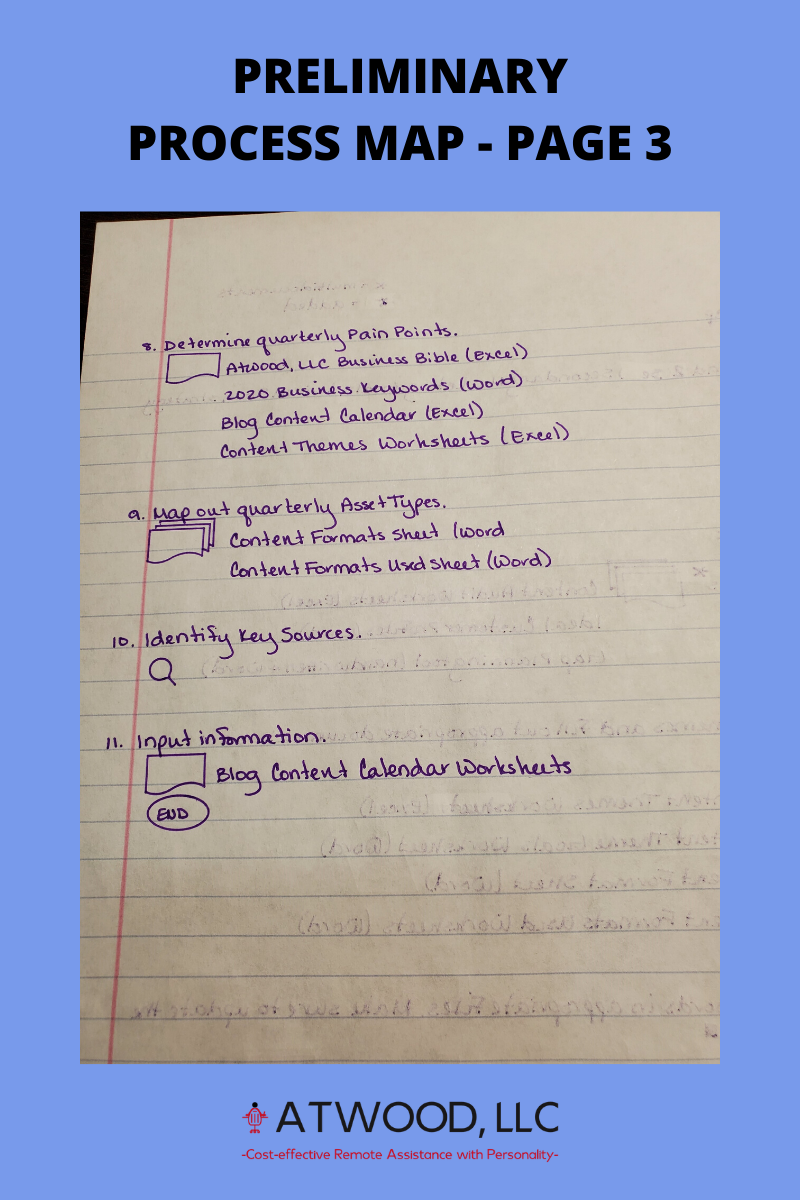 PRELIMINARY
PROCESS MAP - PAGE 3
8. Determine quarterly Pain Points.
Atwood, LLC Business Bible (Excel)
2020 Business Keywords (Word)
Blog Content Calendar (Excel)
Content Themes Worksheets (Excel)
9. Map out quarterly Asset Types.
Content Formats Sheet (Word
Content Formats Used Sheet (Word)
10. Identify Key Sources.
11. Input information.
Blog Content Calendar Worksheets
END
ATWOOD, LLC
-Cost-effective Remote Assistance with Personality-